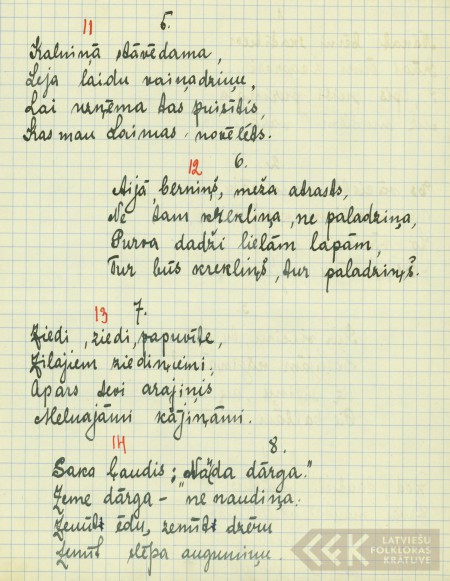 11 5.
Kalniņā stāvēdama,
Leja laidu vaiņadziņu,
Lai uzņēma tas puisītis,
Kas man Laimas novēlēts.
12 6.
Aijā, berniņš, meža atrasts,
Ne tam krekliņa, ne paladziņa,
Purva dadži lielām lapām,
Tur būs krekliņš, tur paladziņš.
13 7.
Ziedi, ziedi, papuvīte,
Zilajiem ziediņiemi,
Apars tevi arajiņis
Melnajāmi kājiņāmi.
14 8.
Saka ļaudis: „Nauda dārga."
Zeme dārga – ne naudiņa.
Zemīt ēdu, zemīt dzēru
Zemīt slēpa augumiņu.
LATVIEŠU
FOLKLORAS
KRĀTUVE